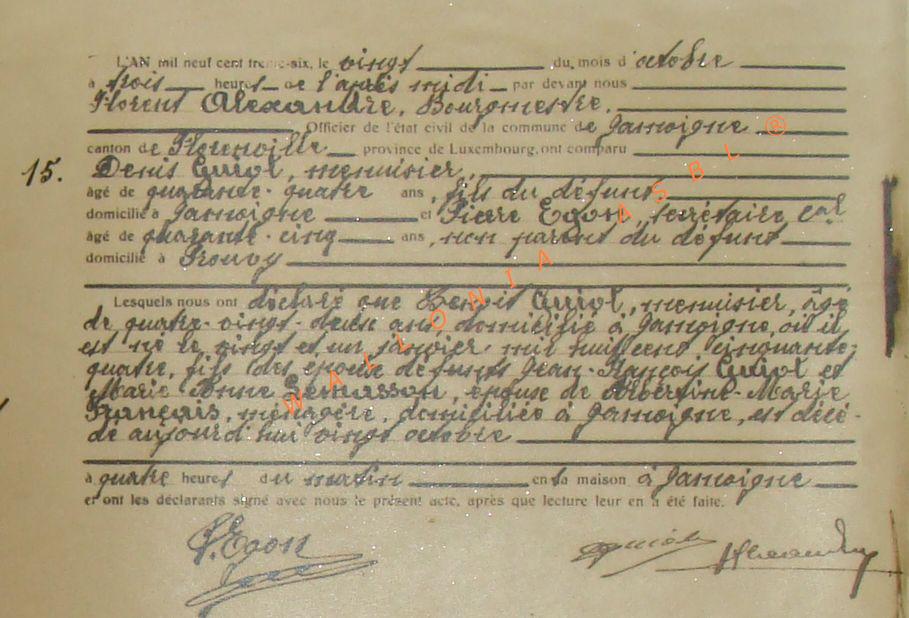 L'AN mil neuf cent trente-six, le vingt du mois d'octobre
à trois heures de l'après midi par devant nous
Florent Alexandre, Bourgmestre,
Officier de l'état civil de la commune de Jamoigne
canton de Florenville province de Luxembourg, ont comparu
15. Denis Guiot, menuisier,
âgé de quarante-quatre ans, fils du défunt
domicilié à Jamoigne et Pierre Egon, secrétaire
âgé de quarante-cinq ans, non parent du défunt
domicilié à Prouvy
Lesquels nous ont déclaré que Benoit Guiot, menuisier, âgé
de quatre-vingt-deux ans, domicilié à Jamoigne, où il
est né le vingt et un janvier mil huit cent cinquante-
quatre, fils des époux défunts Jean-François Guiot et
Marie-Jeanne, époux de Albertine-Marie
François, ménagère, domiciliée à Jamoigne, est décé-
dé aujourd'hui vingt octobre
à quatre heures du matin en sa maison à Jamoigne
et ont les déclarants signé avec nous le présent acte, après que lecture leur en a été faite.
P. Egon
WALLONIA ASBL ®